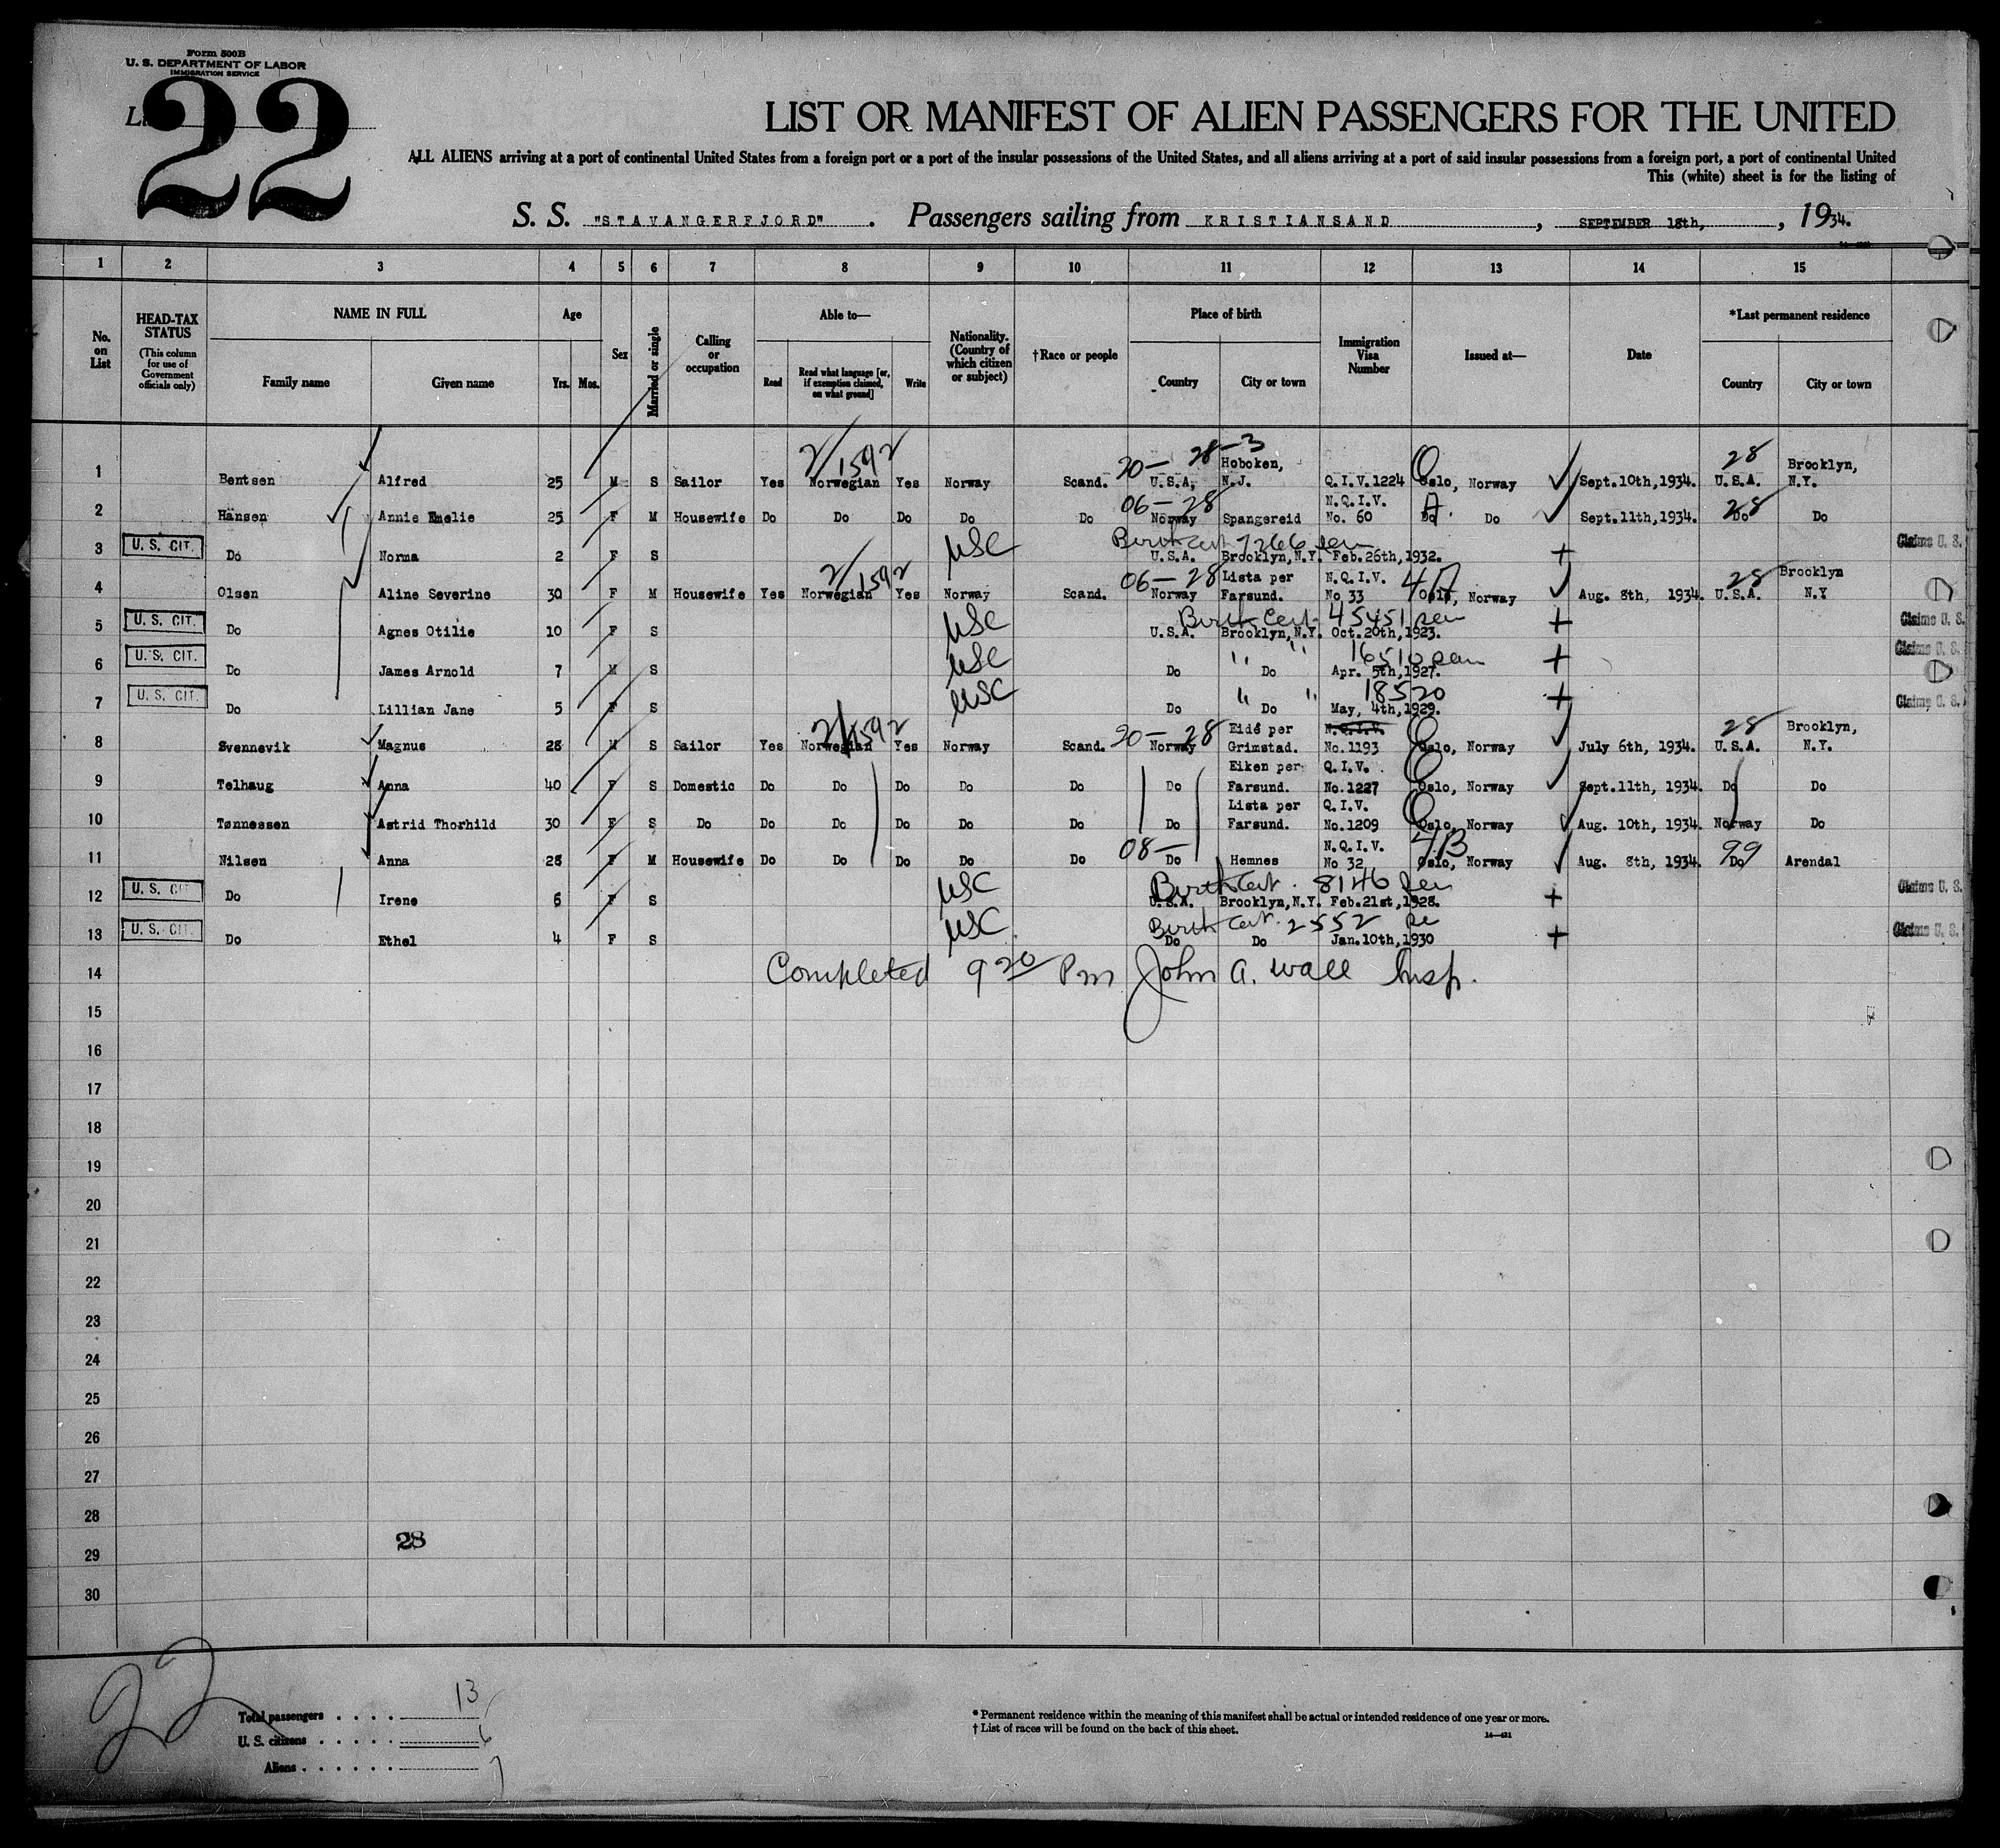 Form 500B
U. S. DEPARTMENT OF LABOR
IMMIGRATION SERVICE
22
LIST OR MANIFEST OF ALIEN PASSENGERS FOR THE UNITED
ALL ALIENS arriving at a port of continental United States from a foreign port or a port of the insular possessions of the United States, and all aliens arriving at a port of said insular possessions from a foreign port, a port of continental United
This (white) sheet is for the listing of
S. S. "STAVANGERFJORD". Passengers sailing from KRISTIANSAND, SEPTEMBER 18th, 1934.
1 2 3 4 5 6 7 8 9 10 11 12 13 14 15
No. on List HEAD-TAX STATUS (This column for use of Government officials only) NAME IN FULL Family name Given name Age Yrs. Mos. Sex Married or single Calling or occupation Able to— Read Read what language [or, if exemption claimed, on what ground] Write Nationality. (Country of which citizen or subject) †Race or people Place of birth Country City or town Immigration Visa Number Issued at— Date *Last permanent residence Country City or town
2/1592 20— 28—3 28
1 Bentsen Alfred 25 M S Sailor Yes Norwegian Yes Norway Scand. U.S.A. Hoboken, N.J. Q.I.V.1224 Oslo, Norway Sept.10th,1934. U.S.A. Brooklyn, N.Y.
06—28 A. 28
2 Hansen Annie Emelie 25 F M Housewife Do Do Do Do Do Norway Spangereid N.Q.I.V. No. 60 Do Do Sept.11th,1934. Do Do
U. S. CIT. USC Birth Cert 7266 Claims U. S.
3 Do Norma 2 F S U.S.A. Brooklyn,N.Y. Feb.26th,1932.
2/1592 06—28 4A 28
4 Olsen Aline Severine 30 F M Housewife Yes Norwegian Yes Norway Scand. Norway Lista per Farsund. N.Q.I.V. No 33 Oslo, Norway Aug. 8th, 1934. U.S.A. Brooklyn N.Y
U. S. CIT. USC Birth Cert. 45451 Claims U. S.
5 Do Agnes Otilie 10 F S U.S.A. Brooklyn,N.Y. Oct.20th,1923.
U. S. CIT. USC " " 16510 Claims U. S.
6 Do James Arnold 7 M S Do Do Apr. 5th,1927.
U. S. CIT. USC " " 18520 Claims U. S.
7 Do Lillian Jane 5 F S Do Do May, 4th,1929.
2/1592 20—28 28
8 Svennevik Magnus 28 M S Sailor Yes Norwegian Yes Norway Scand. Norway Eide per Grimstad. N.Q.I.V. No.1193 Oslo, Norway July 6th, 1934. U.S.A. Brooklyn, N.Y.
9 Telhaug Anna 40 F S Domestic Do Do Do Do Do Do Eiken per Farsund. Q.I.V. No.1227 Oslo, Norway Sept.11th,1934. Do Do
10 Tønnessen Astrid Thorhild 30 F S Do Do Do Do Do Do Do Lista per Farsund. Q.I.V. No.1209 Oslo, Norway Aug. 10th,1934. Norway Do
08— 4B 99
11 Nilsen Anna 28 F M Housewife Do Do Do Do Do Do Hemnes N.Q.I.V. No 32 Oslo, Norway Aug. 8th, 1934. Do Arendal
U. S. CIT USC Birth Cert. 8146 Claims U. S.
12 Do Irene 6 F S U.S.A. Brooklyn,N.Y. Feb.21st,1928.
U. S. CIT. USC Birth Cert. 2552 Claims U. S.
13 Do Ethel 4 F S Do Do Jan.10th,1930
14 Completed 9 20 Pm John A. Wall Insp.
15
16
17
18
19
20
21
22
23
24
25
26
27
28
28
29
30
22
Total passengers . . . . 13
U. S. citizens . . . . . 6
Aliens . . . . . . 7
* Permanent residence within the meaning of this manifest shall be actual or intended residence of one year or more.
† List of races will be found on the back of this sheet.
14—421